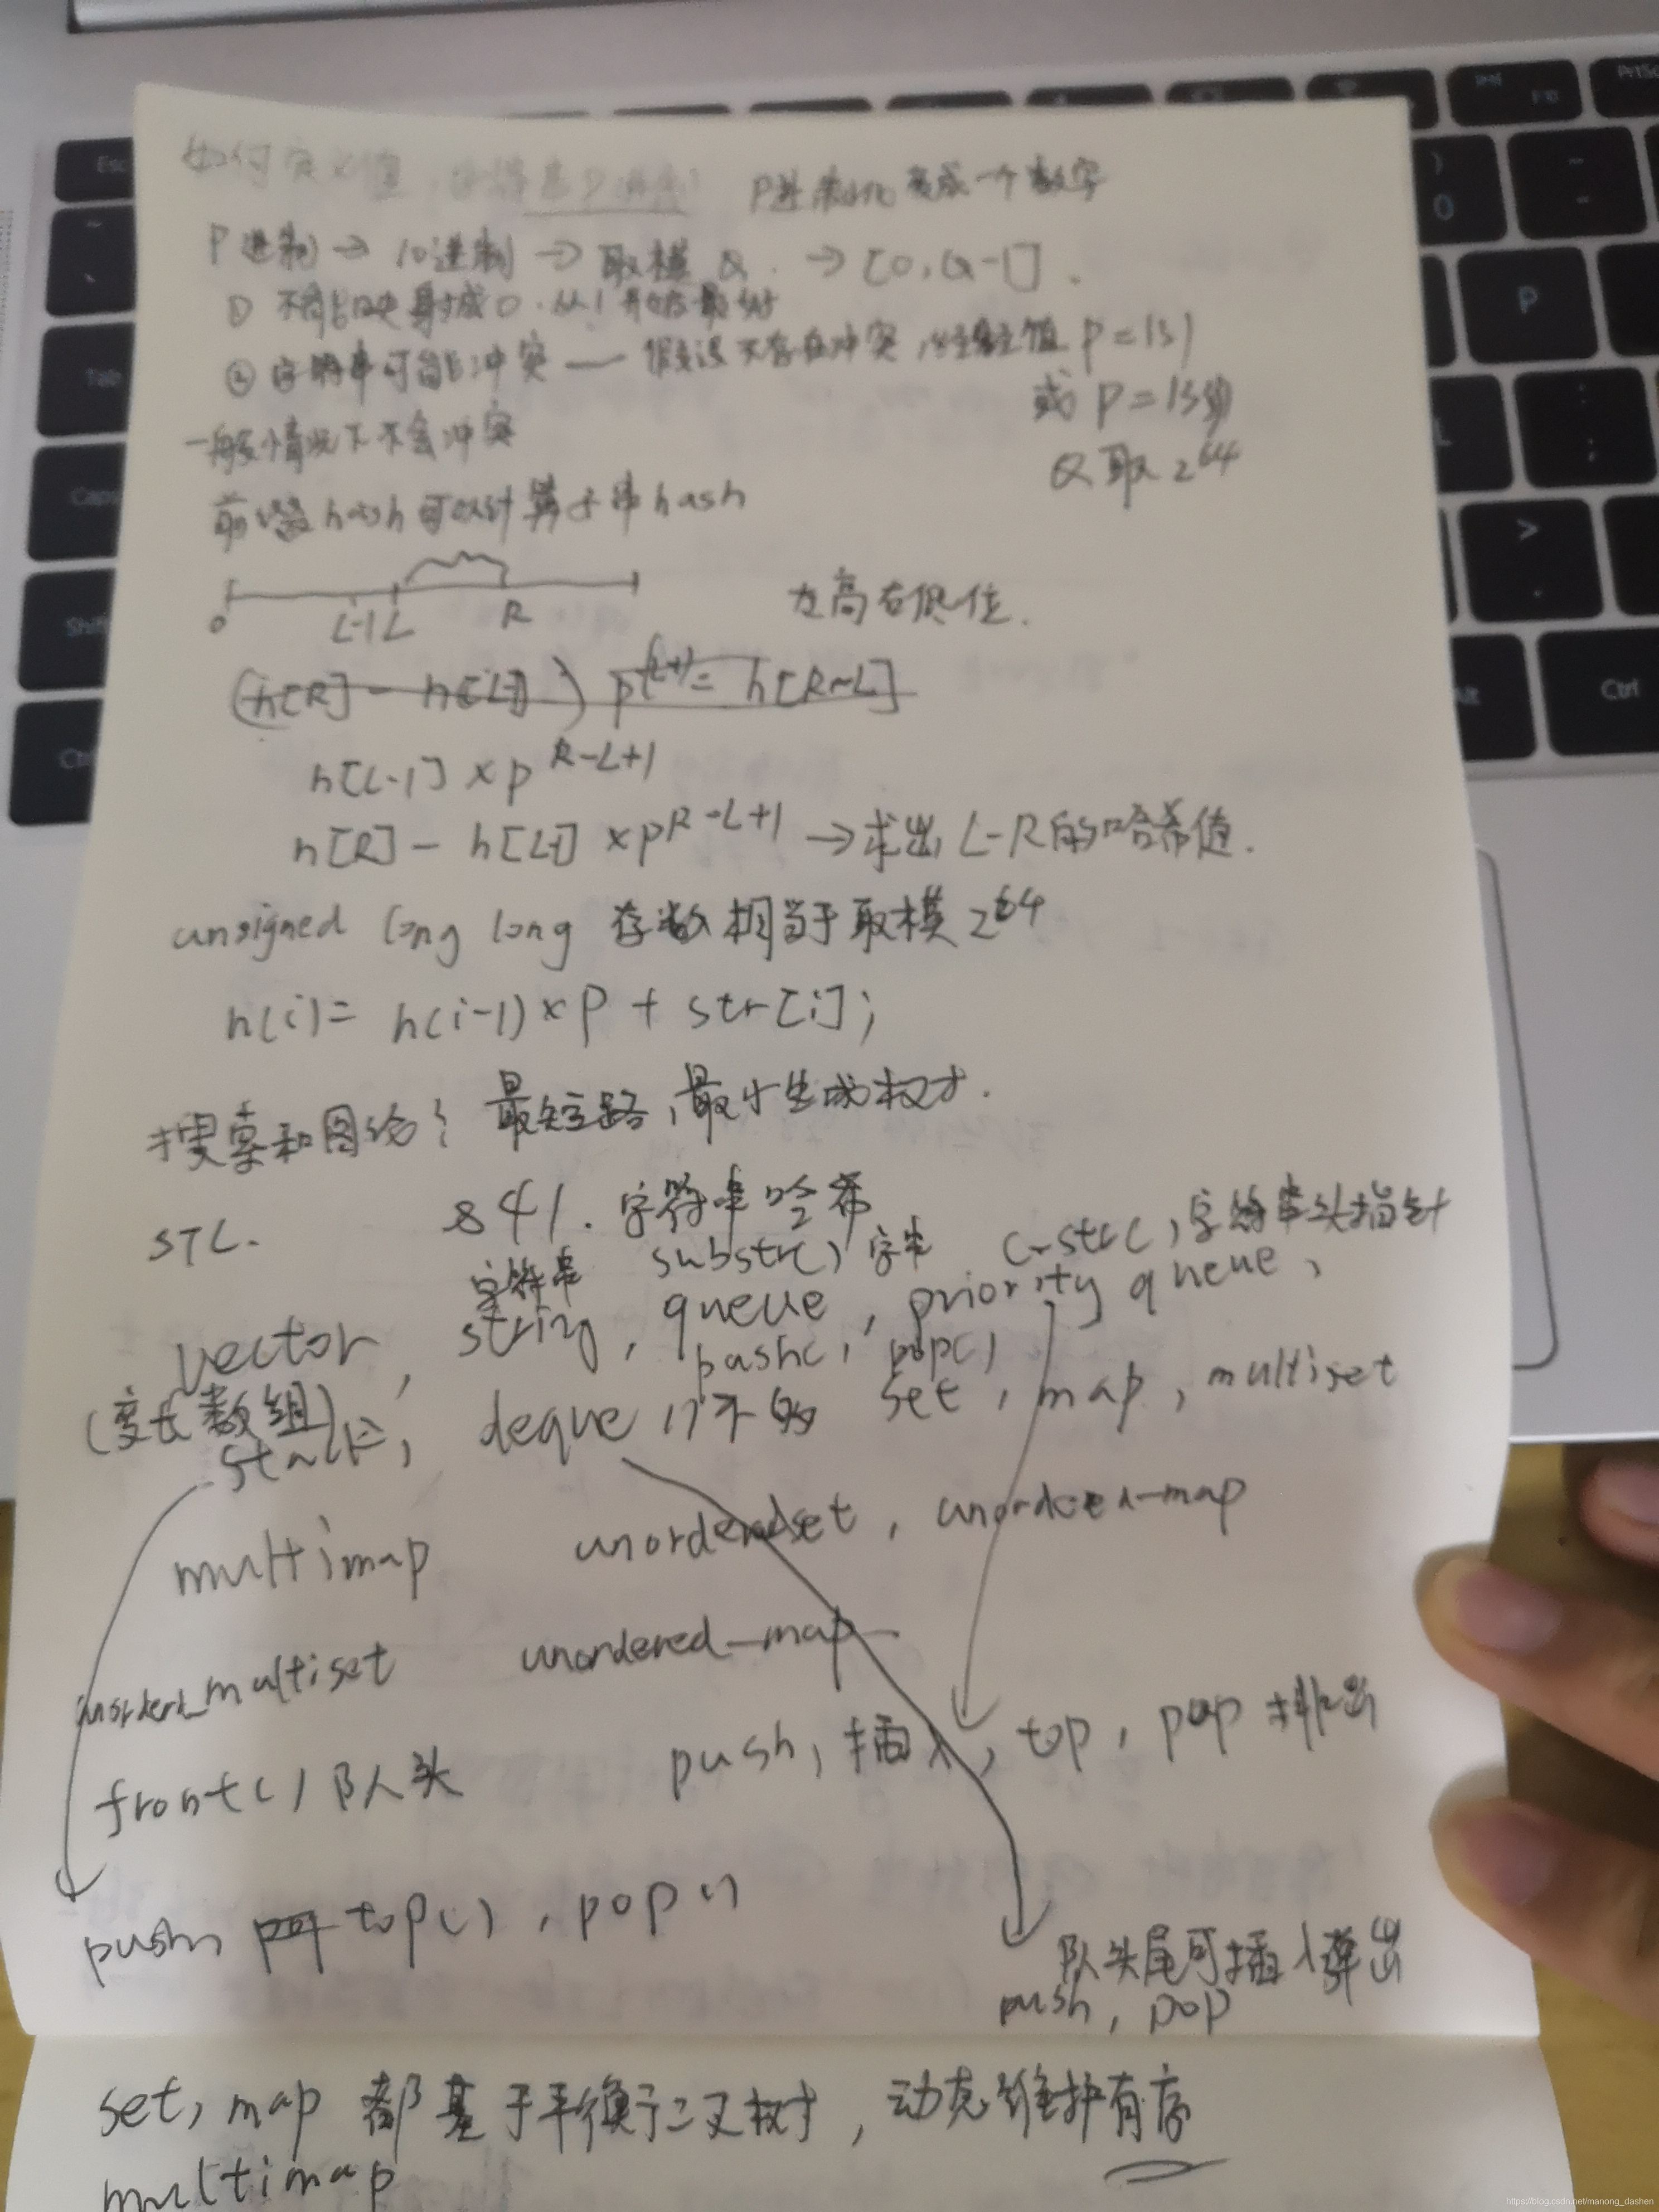 如何定义值，字符串P进制 P进制的 变成一个数字
P进制 → 10进制 → 取模 Q → [0, Q-1].
① 不能映射成0. 从1开始最好
② 字符串可能冲突 — 假设不存在冲突, 经验值 P=131
或 P=1331
一般情况下不会冲突
Q取 2^64
前缀hash可以计算子串hash
0 L-1 L R
左高右低位.
(h[R] - h[L-1]) h[R~L]
h[L-1] × p^R-L+1
h[R] - h[L-1] × p^R-L+1 → 求出 L-R的哈希值.
unsigned long long 存数相当于取模 2^64
h(i) = h(i-1) × P + str[i];
搜索和图论: 最短路, 最小生成树.
841. 字符串哈希
STL.
字符串 substr() 字串 c_str() 字符串头指针
vector, string, queue, priority queue,
(变长数组) push(), pop()
stack, deque 队列 set, map, multiset
multimap unorderedset, unordered_map
unordered_multiset unordered_map
front() 队头 push, 插入, top, pop 排出
push, top(), pop()
队头尾可插入弹出
push, pop
set, map 都基于平衡二叉树, 动态维护有序
multimap
Esc
Tab
Caps
Shift
Ctrl
F10
PrtSc
)
0
P
L
:
;
>
.
Alt
Ctrl
https://blog.csdn.net/manong_dashen